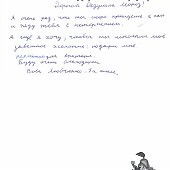 Дорогой Дедушка Мороз!
Я очень рад, что ты скоро придёшь к нам
и жду тебя с нетерпением.
А ещё я хочу, чтобы ты исполнил моё
заветное желание: подари мне
пожалуйста
Буду очень благодарен